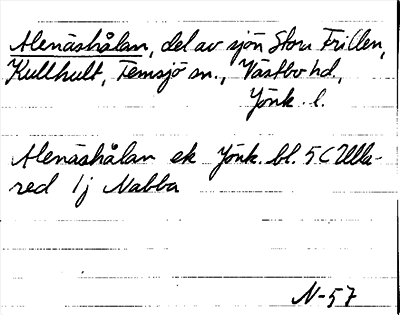 Alenäshålan, del av sjön Stora Frillen,
Kullhult, Femsjö sn., Västbo hd,
Jönk. l.
Alenäshålan ek Jönk. bl. 5 (Ulla-
red 1j Nabba
N-57